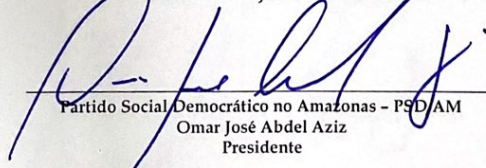 Partido Social Democrático no Amazonas – PSD/AM
Omar José Abdel Aziz
Presidente